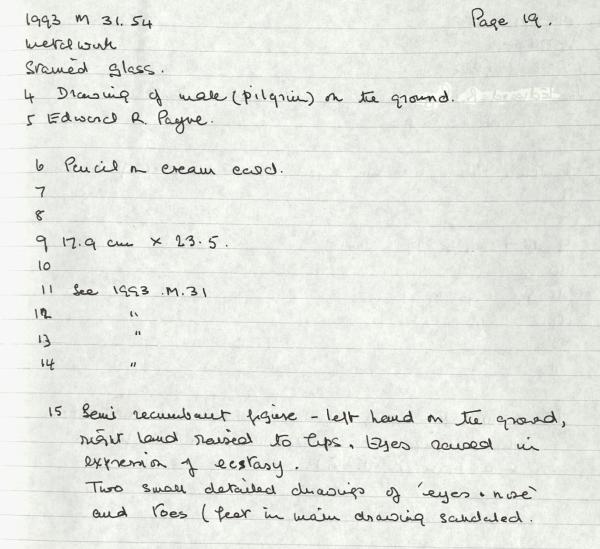 1993 M 31.54 Page 19.
Metalwork
Stained glass.
4 Drawing of male (pilgrim) on the ground.
5 Edward R. Payne.
6 Pencil on cream card.
7
8
9 17.9 cm × 23.5.
10
11 See 1993.M.31
12 "
13 "
14 "
15 Semi recumbent figure - left hand on the ground,
right hand raised to lips. Eyes raised in
expression of ecstasy.
Two small detailed drawings of 'eyes + nose'
and toes (feet in main drawing sandaled.